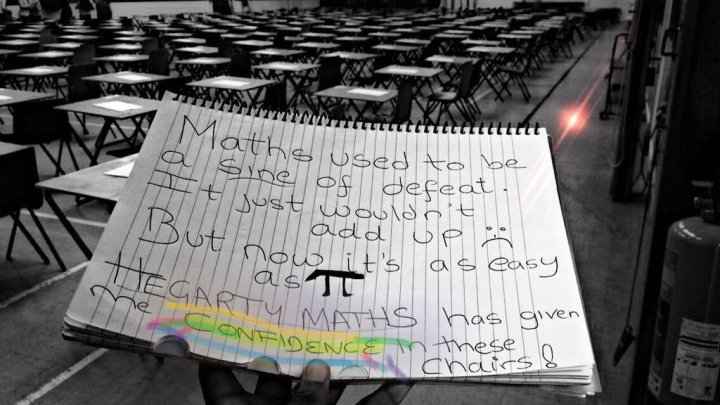 Maths used to be
a sine of defeat.
It just wouldn't
add up :(
But now it's as easy
as π
HEGARTY MATHS has given
me CONFIDENCE in these
chairs!